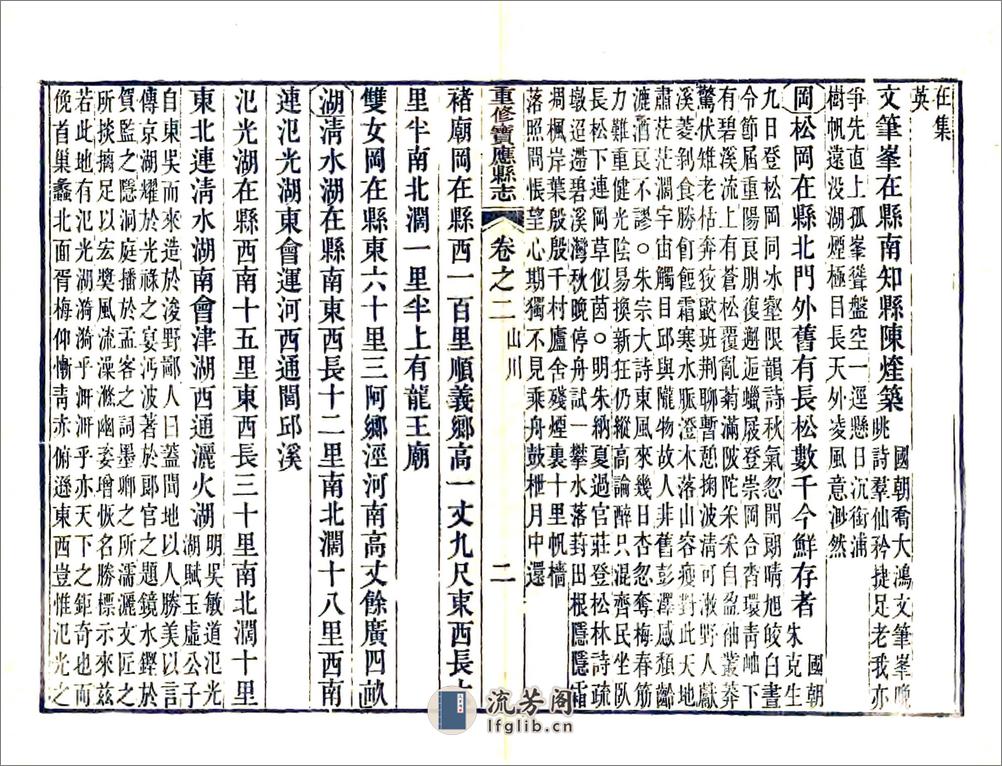 在集
英
文筆峯在縣南知縣陳煃築國朝喬大鴻文筆峯晚
眺詩羣仙矜捷足老我亦
爭先直上孤峯聳盤空一逕懸日沉衙浦
樹帆遠沒湖煙極目長天外凌風意渺然
岡松岡在縣北門外舊有長松數千今鮮存者國朝
朱克生
九日登松岡同冰壑限韻詩秋氣忽開朗晴旭皎白晝
令節屆重陽良朋復邂逅蠟屐登崇岡合沓環青岫下
有碧溪流上有蒼松覆亂菊滿陂陀采采自盈袖叢莽
驚伏雉老枯奔狡鼯班荆聊暫憩掬波清可漱野人獻
溪菱剥食勝飣餖霜寒水脈澄木落山容瘦對此天地
肅茫茫濶宇宙觸目邱與隴物故人非舊彭澤感頹齡
漉酒良不謬○朱宗大詩東風來幾日杏忽奪梅春筋
力難重健光陰易換新狂仍縱高論醉只混齊民坐臥
長松下連岡草似茵○明朱納夏過官莊登松林詩疏
墩迢遰碧溪灣秋晚停舟試一攀水落葑田根隱隱霜
凋楓岸葉殷殷千村廬舍殘煙裏十里帆檣
落照間悵望心期獨不見乘舟鼓枻月中還
重修寶應縣志 卷之二 山川 二
褚廟岡在縣西一百里順義鄉高一丈九尺東西長十
里半南北濶一里半上有龍王廟
雙女岡在縣東六十里三阿鄉涇河南高丈餘廣四畝
湖清水湖在縣南東西長十二里南北濶十八里西南
連氾光湖東會運河西通閶邱溪
氾光湖在縣西南十五里東西長三十里南北濶十里
東北連清水湖南會津湖西通灑火湖明吳敏道氾光
湖賦玉虛公子
自東吳而來造於浚野鄙人曰蓋聞地以人勝美以言
傳京湖耀於光祿之宴沔波著於郎官之題鏡水鏗於
賀監之隱洞庭播於孟客之詞墨卿之所濡灑文匠之
所掞摛足以宏奬風流藻滌幽姿增恢名勝標示來茲
若此地有氾光湖漪漪乎乎亦天下之鉅奇也而
俛首巢蠡北面胥梅仰慚靑赤俯遜東西豈惟氾光之
流芳阁
lfglib.cn